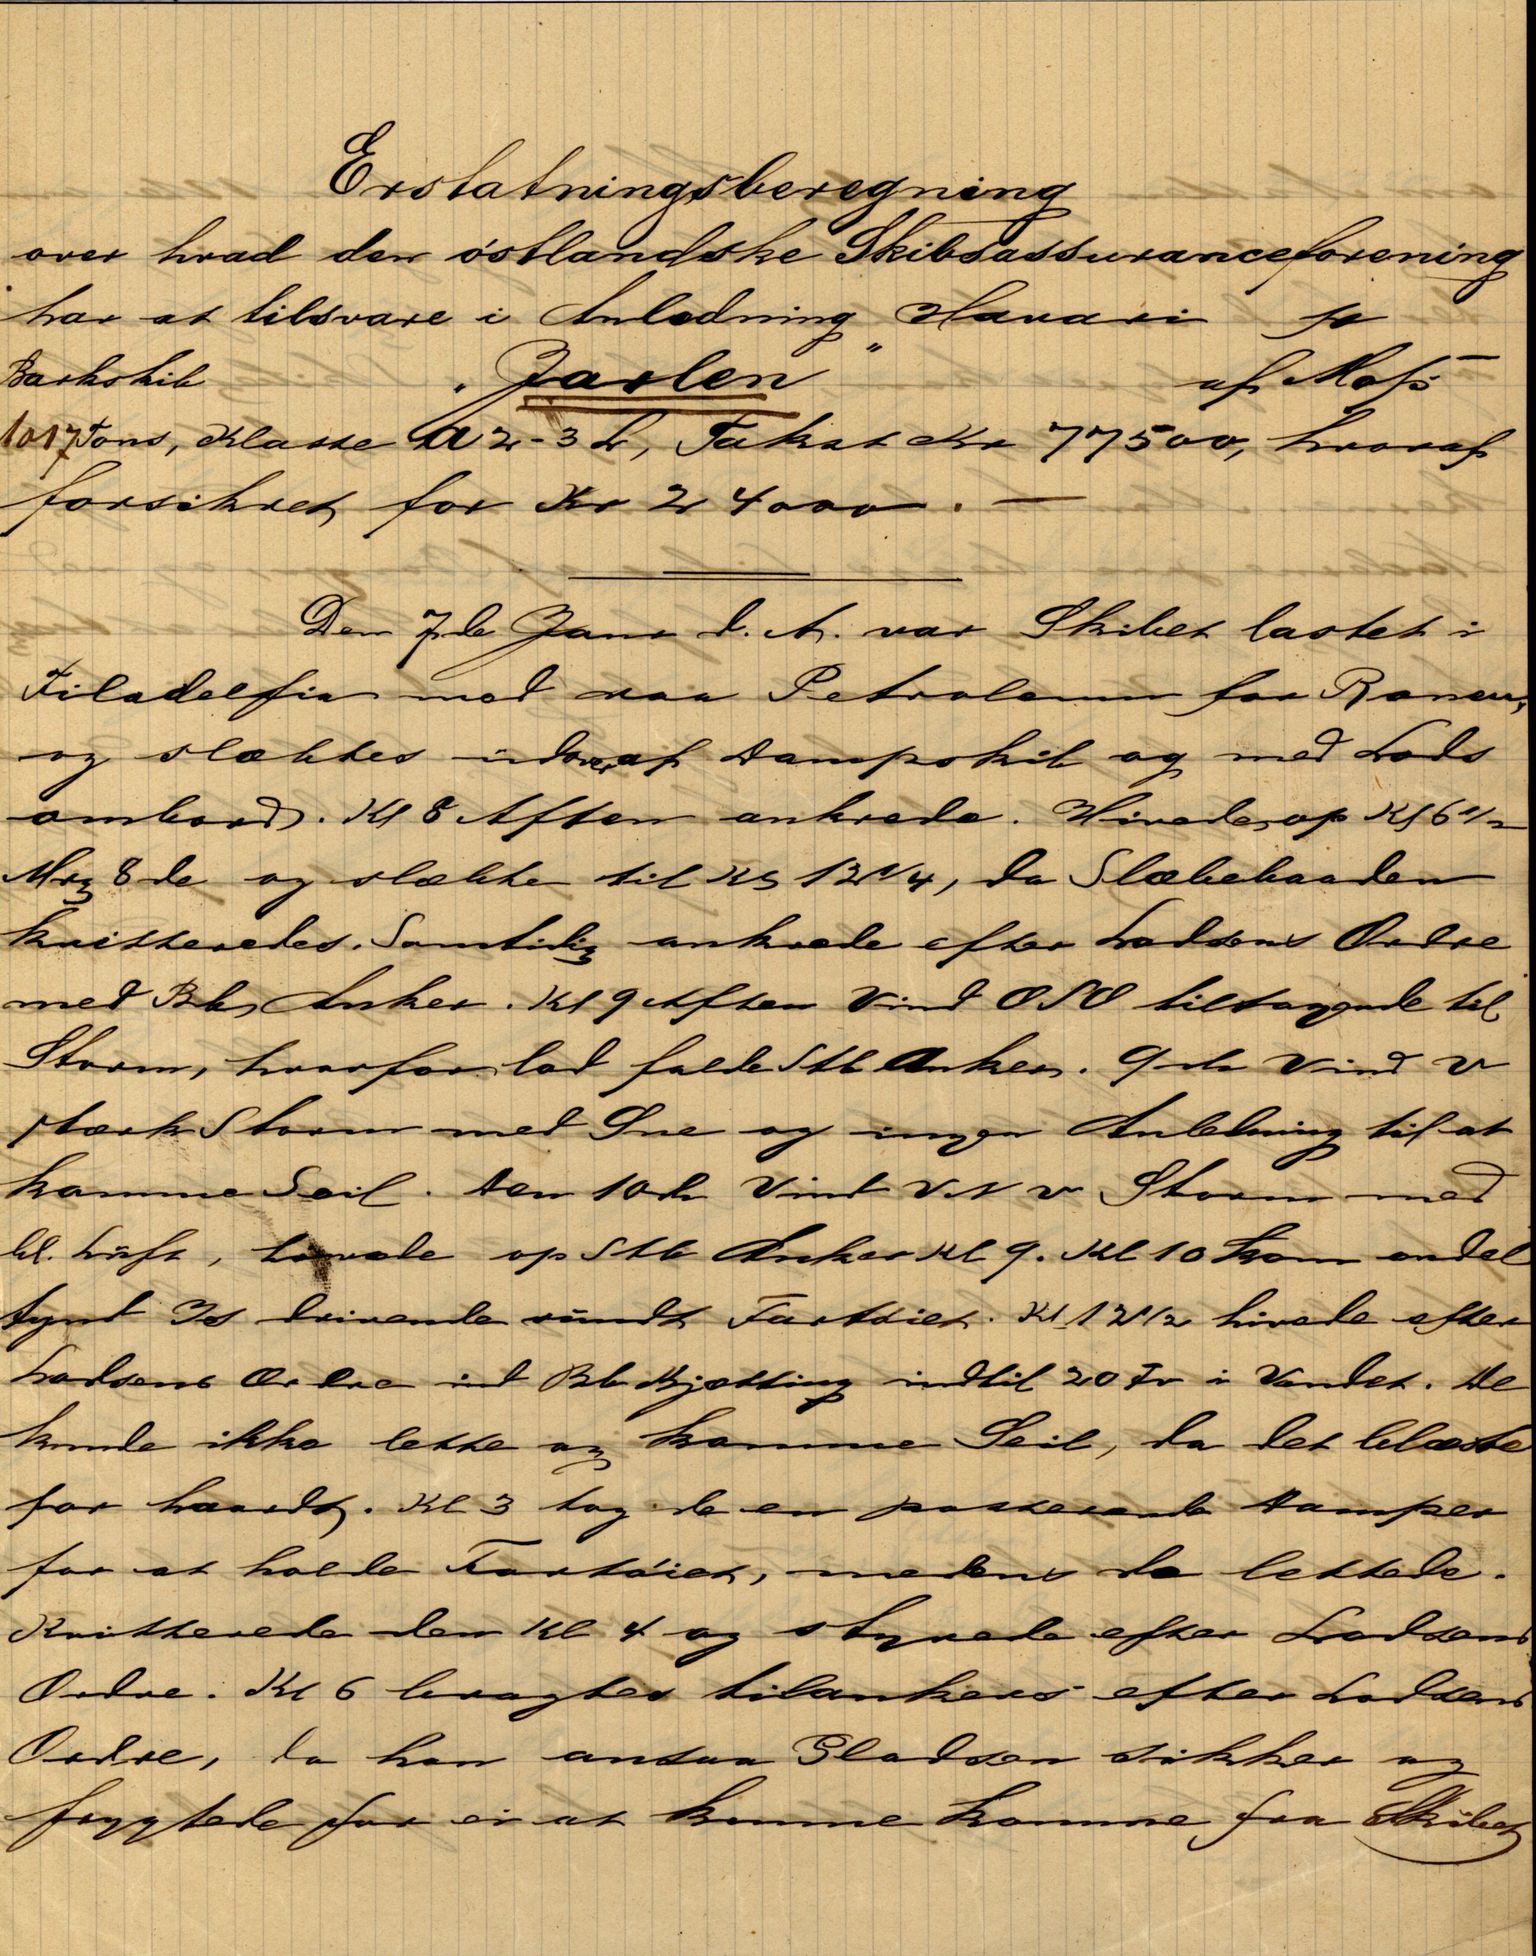 Erstatningsberegning
over hvad den östlandske Skibsassuranceforening
har at tilsvare i Anledning Havari pr
Barkskib "Jarlen" af Moss
1017 Tons, Klasse A 2 - 3 L, Takst Kr 77500, hvoraf
forsikret for Kr 24000. —
Den 7de Janr d. A. var Skibet lastet i
Filadelfia med raa Petroleum for Rouen,
og slæbtes udover af Dampskib og med Lods
ombord. Kl 8 Aften ankrede. Hivede op Kl 6 1/2
Mrg 8de og slæbte til Kl 12 1/4, da Slæbebaaden
kvitteredes. Samtidig ankrede efter Lodsens Ordre
med Bb Anker. Kl 9 Aften Vind OSO tiltagende til
Storm, hvorfor lod falde Stb Anker. 9de Vind V
stærk Storm med Sne og ingen Anledning til at
komme Seil. Den 10de Vind VNV Storm med
kl. Luft, hivede op Stb Anker Kl 9. Kl 10 kom endel
tynd Is drivende rundt Fartöiet. Kl 12 1/2 hivede efter
Lodsens Ordre ind Bb Kjætting indtil 20 Fv i Vandet. De
kunde ikke lette og komme Seil, da det blæste
for haardt. Kl 3 tog de en passerende Damper
for at holde Fartöiet, medens de lettede.
Kvitterede den Kl 4 og styrede efter Lodsens
Ordre. Kl 6 bragtes tilankers efter Lodsens
Ordre, da han ansaa Pladsen sikker og
frygtede for ei at kunne komme fra Skibet